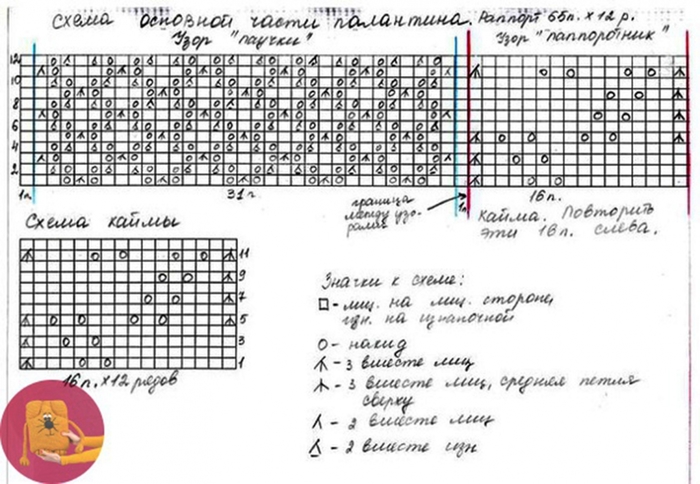 Схема основной части палантина. Раппорт 66п. х 12 р.
Узор "паучки"
Узор "папоротник"
12
10
8
6
4
2
1п.
31п.
граница между узорами
1п.
16п.
Кайма. Повторить
эти 16п. слева.
Схема каймы
11
9
7
5
3
1
16п. х 12 рядов
Значки к схеме:
□ - лиц. на лиц. стороне,
изн. на изнаночной
О - накид
- 3 вместе лиц
- 3 вместе лиц, средняя петля
сверху
- 2 вместе лиц
- 2 вместе изн